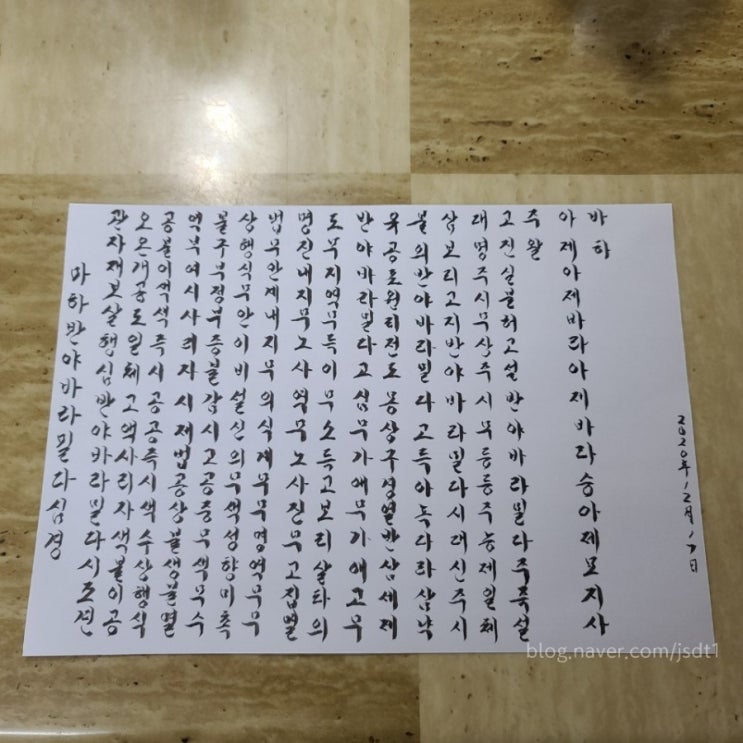 마하반야바라밀다심경
관자재보살행심반야바라밀다시조견
오온개공도일체고액사리자색불이공
공불이색색즉시공공즉시색수상행식
역부여시사리자시제법공상불생불멸
불구부정부증불감시고공중무색무수
상행식무안이비설신의무색성향미촉
법무안계내지무의식계무무명역무무
명진내지무노사역무노사진무고집멸
도무지역무득이무소득고보리살타의
반야바라밀다고심무가애무가애고무
유공포원리전도몽상구경열반삼세제
불의반야바라밀다고득아녹다라삼낙
삼보리고지반야바라밀다시대신주시
대명주시무산주시무등등주능제일체
고진실불허고설반야바라밀다주즉설
주왈
아제아제바라아제바라승아제모지사
바하
2020年 12月 17日
blog.naver.com/jsdt1